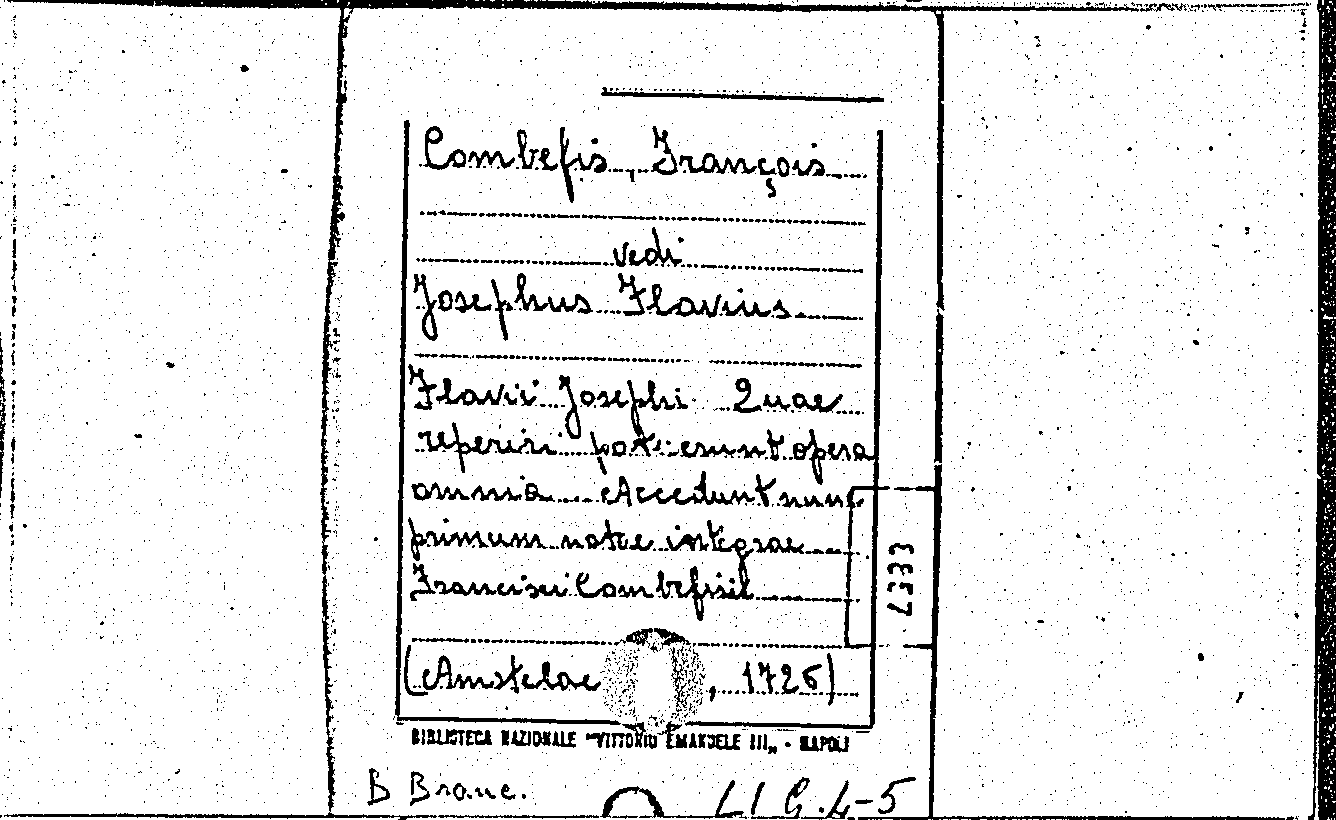 Combefis, François
vedi
Josephus Flavius
Flavii Josephi Quae
reperiri potuerunt opera
omnia... Accedunt nunc
primum notae integrae
Francisci Combefisii
(Amstelae , 1726)
BIBLIOTECA NAZIONALE "VITTORIO EMANUELE III„ - NAPOLI
B Branc. LI G.4-5
7333